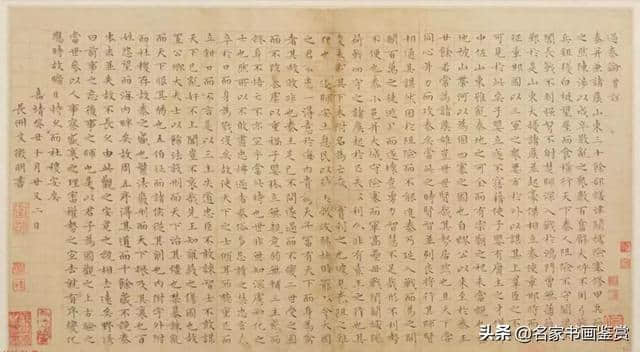 過秦論 賈誼
秦并兼諸侯山東三十餘郡繕津關據險塞修甲兵而守
之然陳涉以戍卒散亂之衆數百奮臂大呼不用弓戟之
兵鉏耰白梃望屋而食橫行天下秦人阻險不守關梁不
闔長戟不刺強弩不射楚師深入戰於鴻門曾無藩籬之
艱於是山東大擾諸侯並起豪俊相立秦使章邯將而東
征章邯因以三軍之衆要市於外以謀其上羣臣之不信
可見於此矣子嬰立遂不寤藉使子嬰有庸主之材僅得
中佐山東雖亂秦地之可全而有宗廟之祀未當絕也秦
地被山帶河以為固四塞之國也自繆公以來至於秦王
廿餘君常為諸侯雄豈世世賢哉其勢居然也且天下嘗
同心并力而攻秦矣當此之世賢智並列良將行其師賢
相通其謀然困於阻險而不能進秦乃延入戰而為之開
關百萬之徒逃北而遂壞豈勇力智慧不足哉形不利勢
不便也秦小邑并大城守險塞而軍高壘毋戰閉關據阨
荷戟而守之諸侯起於匹夫以利合非有素王之行也其
交未親其下未附名為亡秦其實利之也彼見秦阻之難
犯也必退師安土息民以待其敝收弱扶罷以令大國
之君不患不得意於海內貴為天子富有天下而身為禽
者其救敗非也秦王足己不問遂過而不變二世受之因
而不改暴虐以重禍子嬰孤立無親危弱無輔三主惑而
終身不悟亡不亦宜乎當此時也世非無深慮知化之
士也然所以不敢盡忠拂過者秦俗多忌諱之禁忠言未
卒於口而身為戮沒矣故使天下之士傾耳而聽重足而
立鉗口而不言是以三主失道忠臣不敢諫智士不敢謀
天下已亂奸不上聞豈不哀哉先王知雍蔽之傷國也故
置公卿大夫士以飾法設刑而天下治其彊也禁暴誅亂
而天下服其弱也五伯征而諸侯從其削也內守外附
而社稷存故秦之盛也繁法嚴刑而天下振及其衰也百
姓怨望而海內畔矣故周五序得其道而千餘歲不絕秦
本末並失故不長久由此觀之安危之統相去遠矣野諺
曰前事之不忘後事之師也是以君子為國觀之上古驗之
當世參以人事察盛衰之理審權勢之宜去就有序變化
應時故曠日持久而社稷安矣
嘉靖癸丑十月廿又二日
長洲文徵明書
头条@名家书画鉴赏